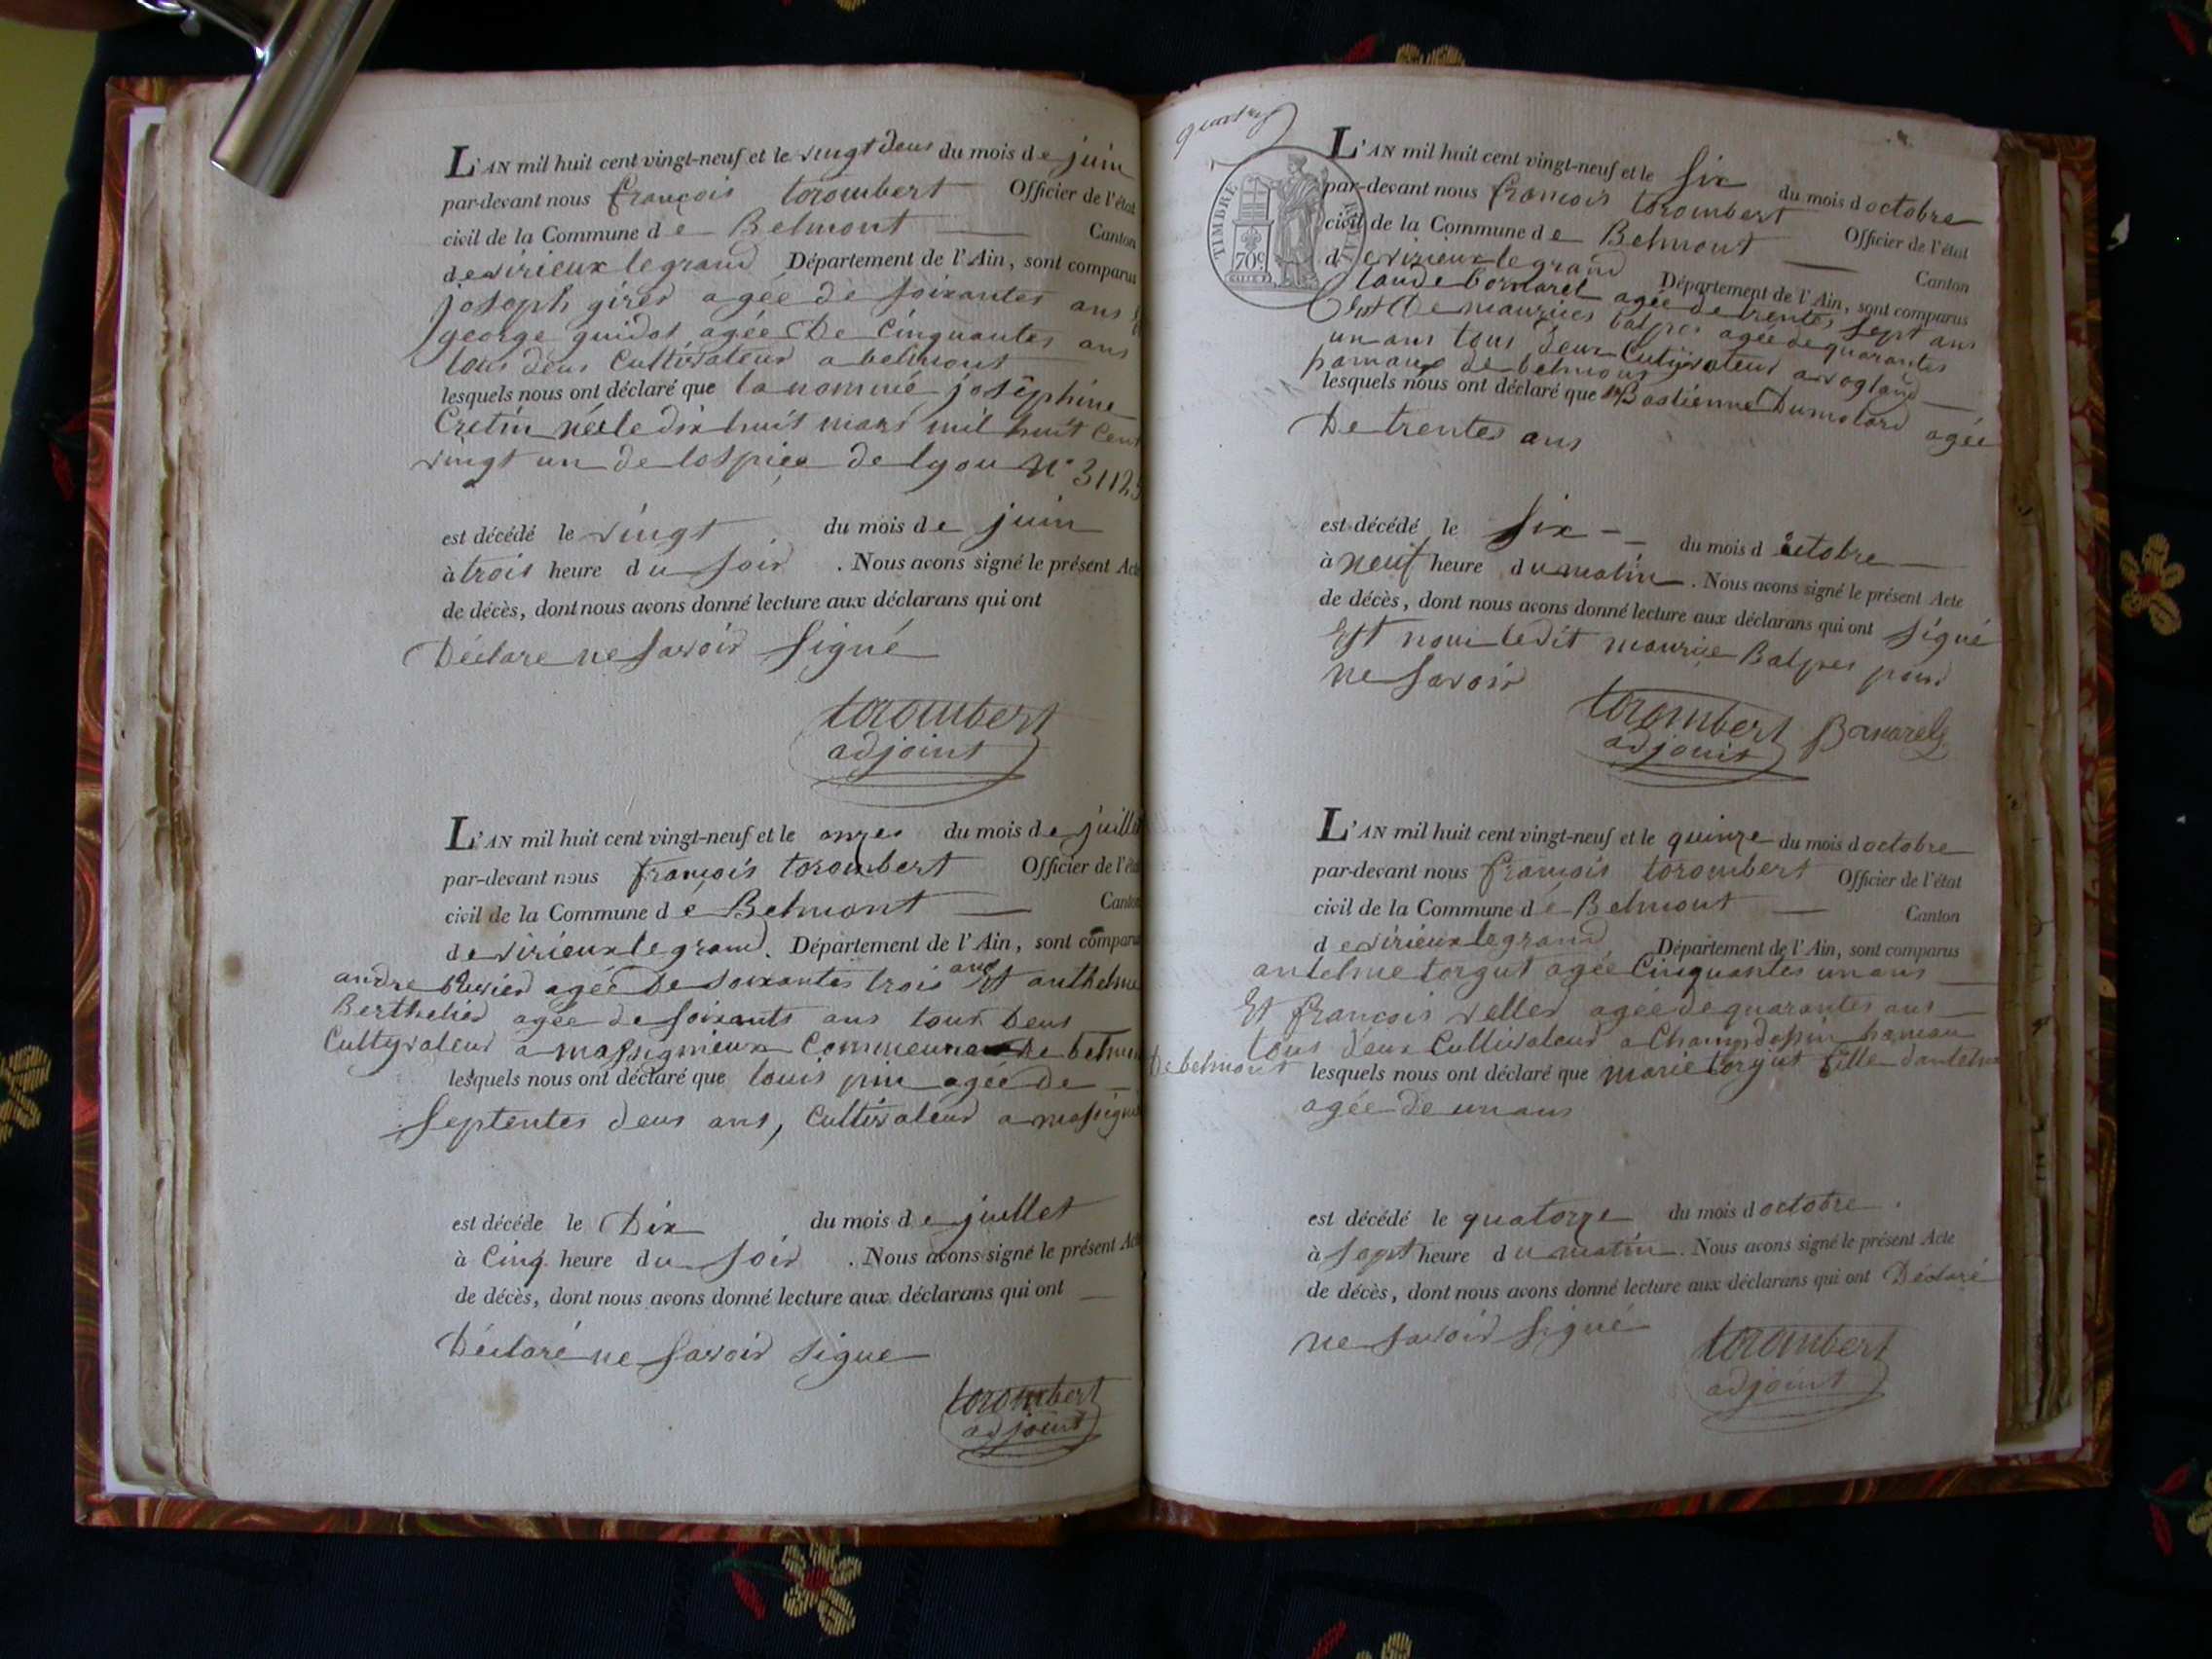 L'AN mil huit cent vingt-neuf et le vingt deus du mois de juin
par-devant nous françois torombert Officier de l'état
civil de la Commune de Belmont Canton
de virieux le grand Département de l'Ain, sont comparus
joseph girer agée de soixantes ans
george guidot agée De Cinquantes ans
tous deus Cultivateur a belmont
lesquels nous ont déclaré que la nommé joséphine
Cretin née le dix huit mars mil huit Cent
vingt un de lospice de lyon N° 3112
est décédé le vingt du mois de juin
à trois heure du soir . Nous avons signé le présent Acte
de décès, dont nous avons donné lecture aux déclarans qui ont
Déclare ne savoir signé
torombert
adjoint
L'AN mil huit cent vingt-neuf et le onzes du mois de juillet
par-devant nous françois torombert Officier de l'état
civil de la Commune de Belmont Canton
de virieux le grand. Département de l'Ain, sont comparus
andre agée De soixantes trois ans Et anthelme
Berthelier agée de soixants ans tout deus
Cultyvateur a massignieux Commeune De belmon
lesquels nous ont déclaré que louis pin agée de
septentes deus ans, Cultivateur a massign
est décédé le Dix du mois de juillet
à Cinq heure du soir . Nous avons signé le présent Acte
de décès, dont nous avons donné lecture aux déclarans qui ont
Déclaré ne savoir signe
torombert
adjoint
TIMBRE ROYAL
70c
L'AN mil huit cent vingt-neuf et le six du mois doctobre
par-devant nous françois torombert Officier de l'état
civil de la Commune de Belmont Canton
de virieux le grand Département de l'Ain, sont comparus
Claude bornarel agée de trentes sept ans
Et De maurices balpes agée de quarantes
un ans tous deux Cultivateur a vogland
hamaux de belmont
lesquels nous ont déclaré que Bastienne Dumolard agée
De trentes ans
est décédé le six du mois d octobre
à neuf heure du matin . Nous avons signé le présent Acte
de décès, dont nous avons donné lecture aux déclarans qui ont signé
Est non ledit maurice Balpes pour
ne savoir
torombert
adjoint
L'AN mil huit cent vingt-neuf et le quinze du mois doctobre
par-devant nous françois torombert Officier de l'état
civil de la Commune de Belmont Canton
de virieux le grand Département de l'Ain, sont comparus
antelme torgut agée Cinquantes un ans
Et françois veller agée de quarantes ans
tous deux Cultivateur a Champdossin hameau
De belmont lesquels nous ont déclaré que marie torgut fille dantelme
agée de un ans
est décédé le quatorze du mois doctobre
à sept heure du matin. Nous avons signé le présent Acte
de décès, dont nous avons donné lecture aux déclarans qui ont Déclaré
ne savoir signé
torombert
adjoint